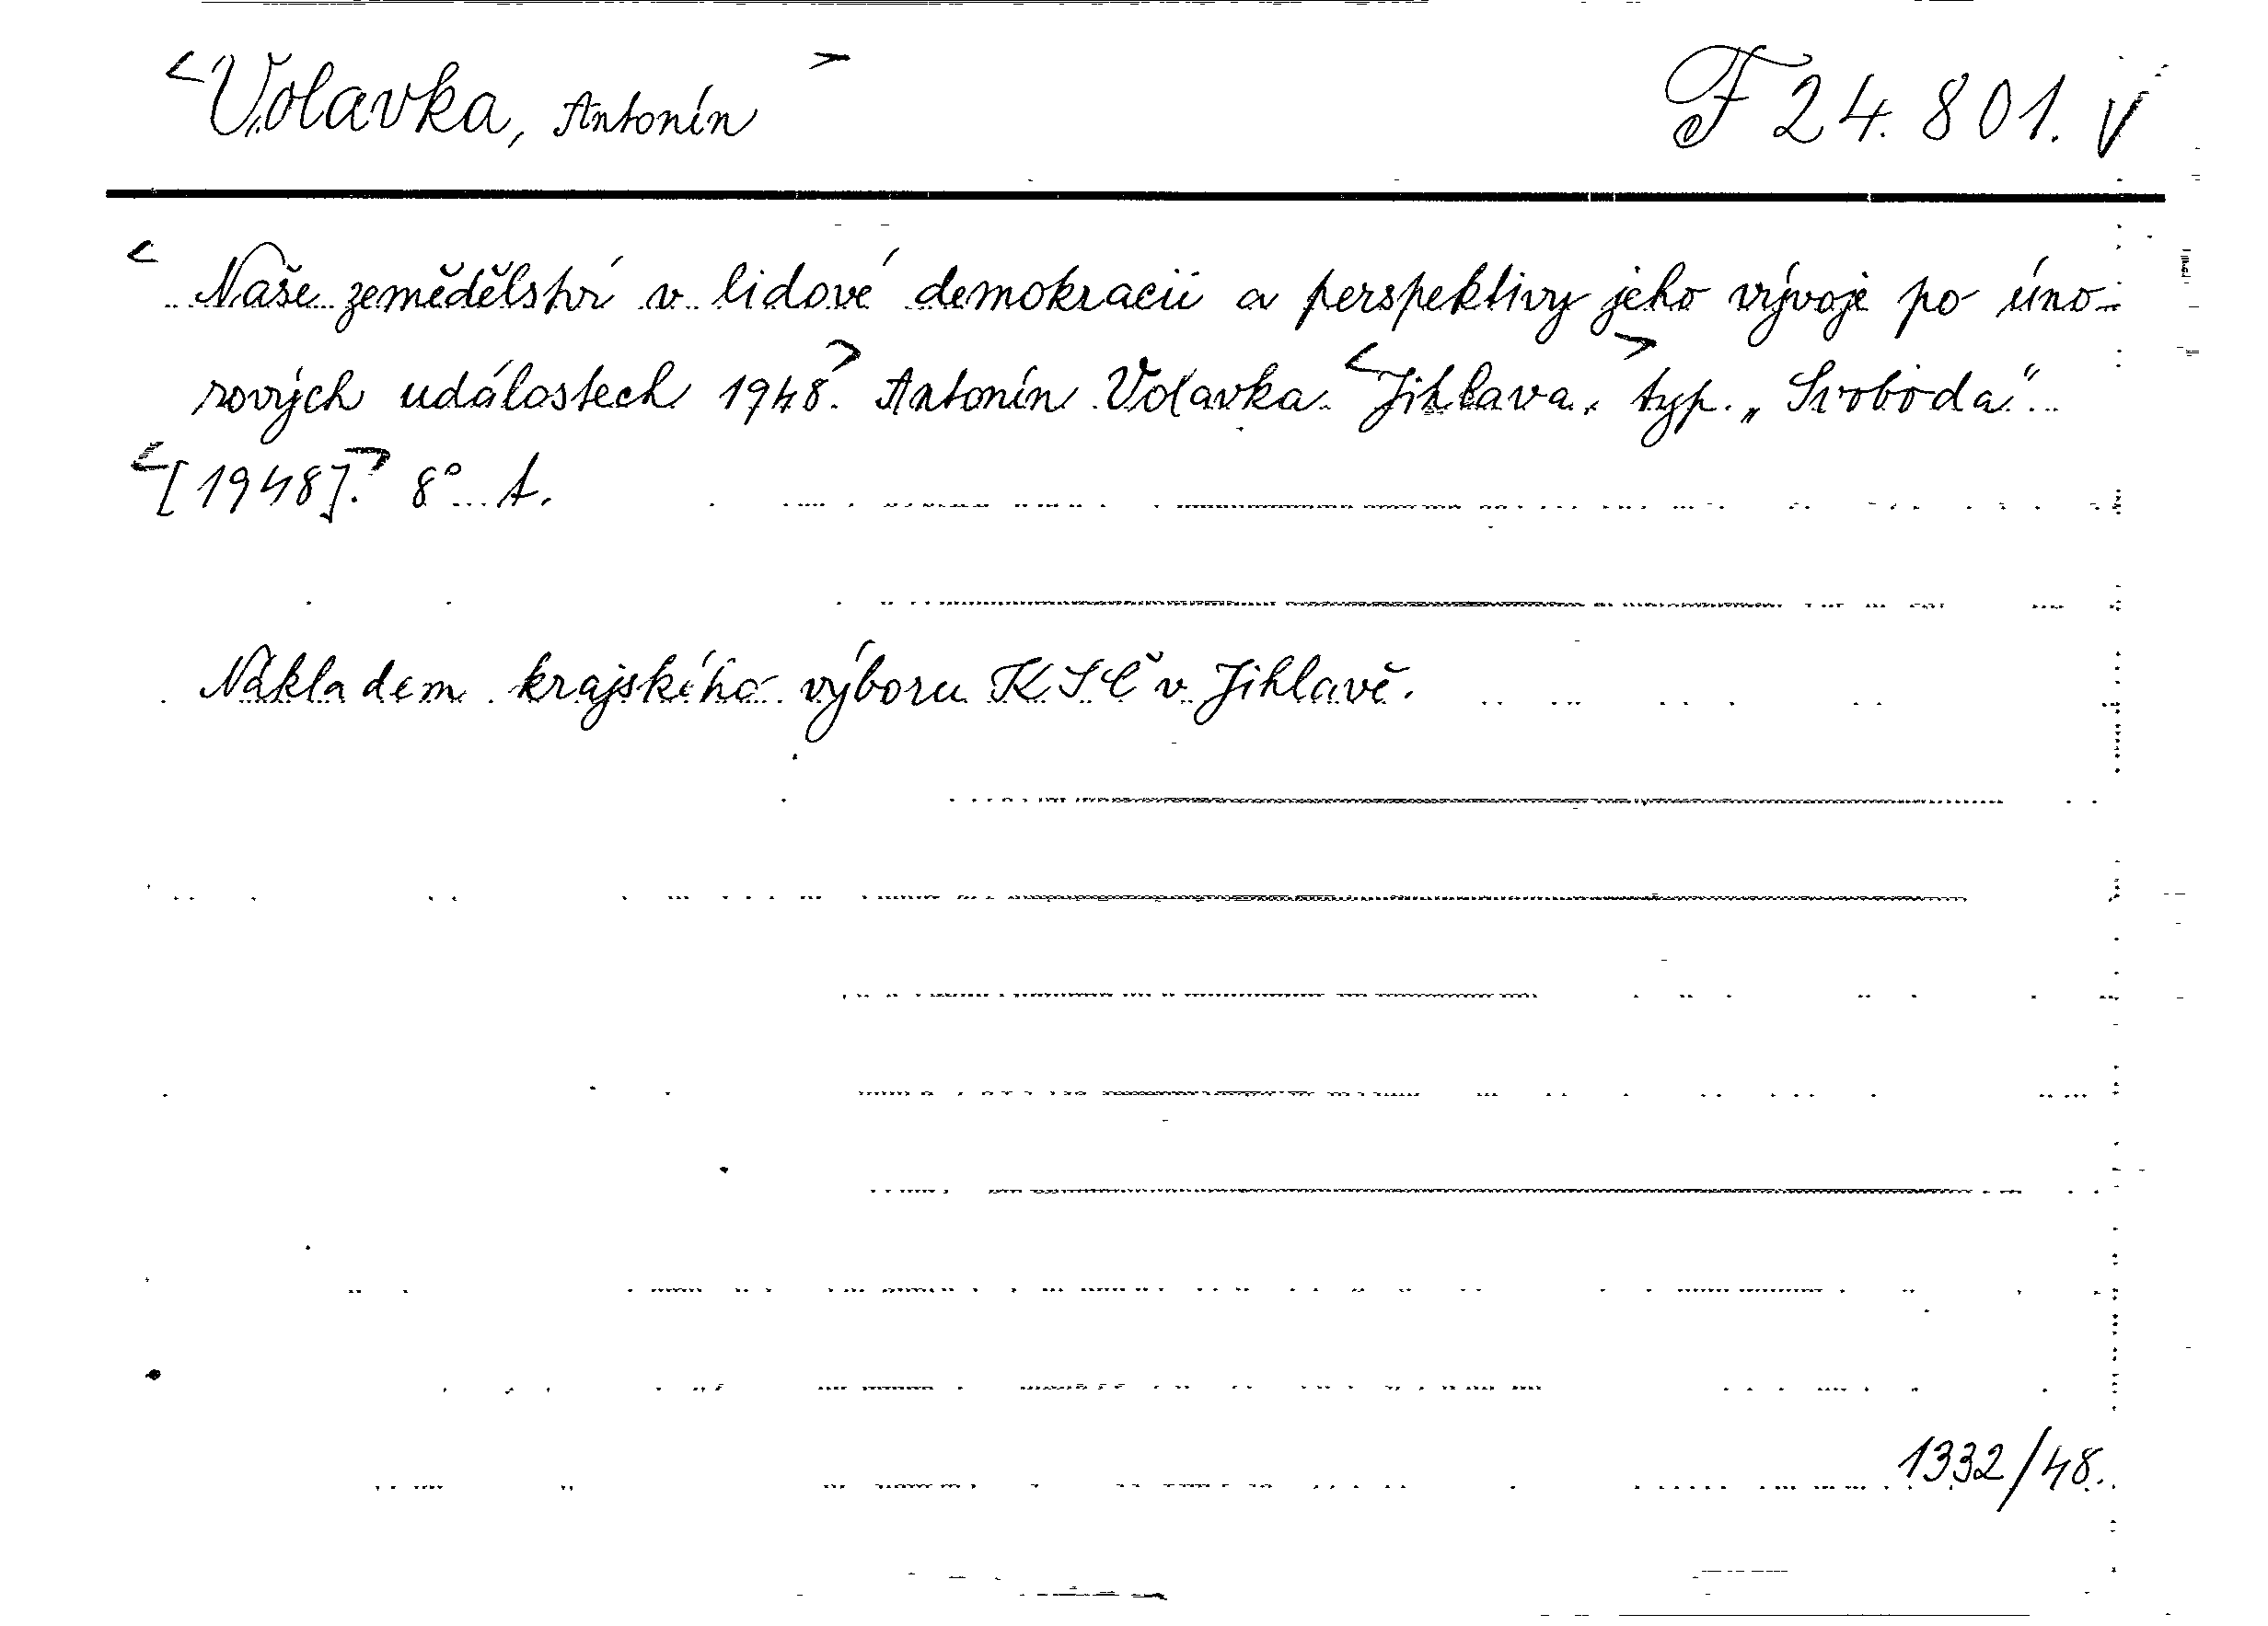 <Volavka, Antonín> F 24.801. V
<Naše zemědělství v lidové demokracii a perspektivy jeho vývoje po úno-
rových událostech 1948.> Antonín Volavka. <Jihlava,> typ. „Svoboda“
<[1948].> 8° A.
Nákladem krajského výboru KSČ v Jihlavě.
1332/48.